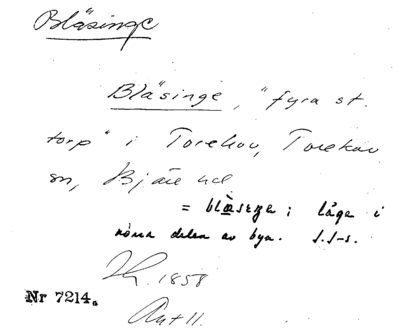 Bläsinge
Bläsinge, "fyra st.
torp" i Torekov, Torekov
sn, Bjäre hd
= blàseŋe; låge i
norra delen av byn. S.S-s.
1858
Nr 7214.
Ant 11.